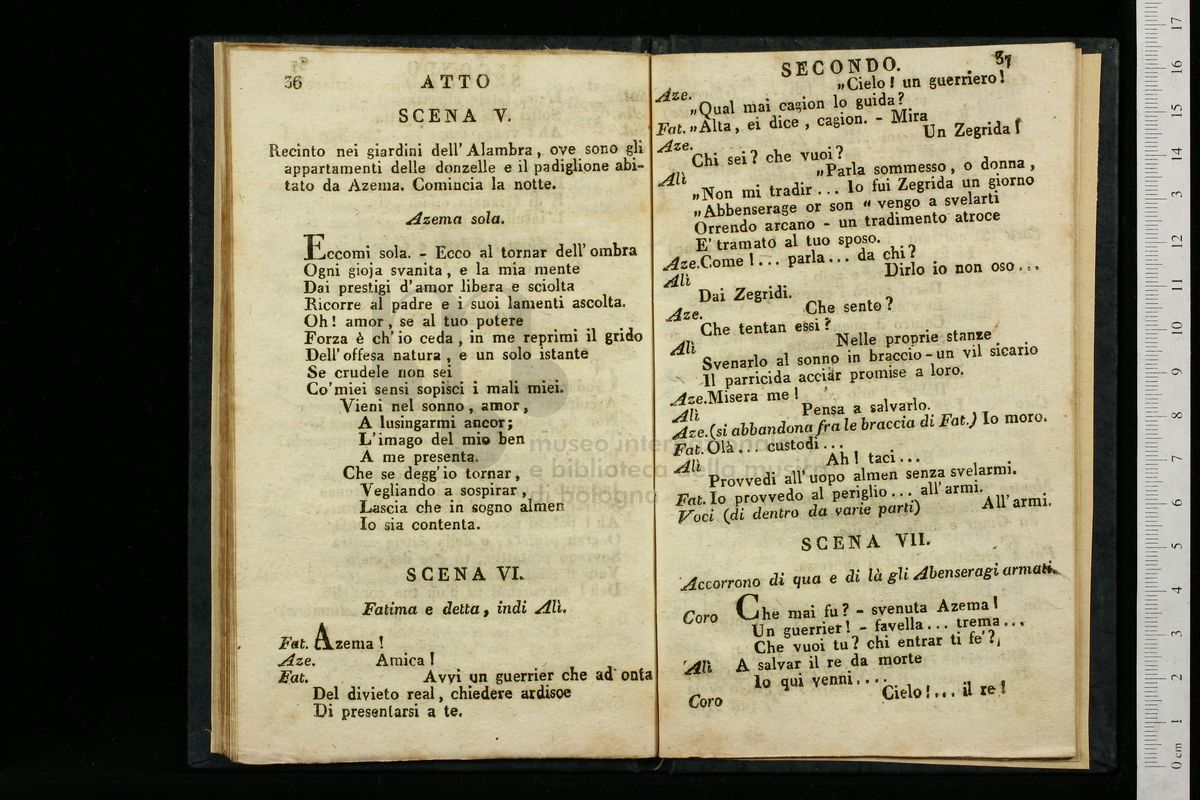 36 ATTO
SCENA V.
Recinto nei giardini dell'Alambra, ove sono gli
appartamenti delle donzelle e il padiglione abi-
tato da Azema. Comincia la notte.
Azema sola.
Eccomi sola. - Ecco al tornar dell'ombra
Ogni gioja svanita, e la mia mente
Dai prestigi d'amor libera e sciolta
Ricorre al padre e i suoi lamenti ascolta.
Oh! amor, se al tuo potere
Forza è ch'io ceda, in me reprimi il grido
Dell'offesa natura, e un solo istante
Se crudele non sei
Co'miei sensi sopisci i mali miei.
Vieni nel sonno, amor,
A lusingarmi ancor;
L'imago del mio ben
A me presenta.
Che se degg'io tornar,
Vegliando a sospirar,
Lascia che in sogno almen
Io sia contenta.
SCENA VI.
Fatima e detta, indi Alì.
Fat. Azema!
Aze. Amica!
Fat. Avvi un guerrier che ad onta
Del divieto real, chiedere ardisce
Di presentarsi a te.
SECONDO. 37
Aze. „Cielo! un guerriero!
„Qual mai cagion lo guida?
Fat. „Alta, ei dice, cagion. - Mira
Aze. Un Zegrida!
Chi sei? che vuoi?
Alì „Parla sommesso, o donna,
„Non mi tradir... Io fui Zegrida un giorno
„Abbenserage or son “ vengo a svelarti
Orrendo arcano - un tradimento atroce
E' tramato al tuo sposo.
Aze. Come!... parla... da chi?
Alì Dirlo io non oso...
Dai Zegridi.
Aze. Che sento?
Che tentan essi?
Alì Nelle proprie stanze
Svenarlo al sonno in braccio - un vil sicario
Il parricida acciar promise a loro.
Aze. Misera me!
Alì Pensa a salvarlo.
Aze. (si abbandona fra le braccia di Fat.) Io moro.
Fat. Olà... custodi...
Alì Ah! taci...
Provvedi all'uopo almen senza svelarmi.
Fat. Io provvedo al periglio... all'armi.
Voci (di dentro da varie parti) All'armi.
SCENA VII.
Accorrono di qua e di là gli Abenseragi armati.
Coro Che mai fu? - svenuta Azema!
Un guerrier! - favella... trema...
Che vuoi tu? chi entrar ti fe'?
Alì A salvar il re da morte
Io qui venni....
Coro Cielo!... il re!
museo internazionale
e biblioteca della musica
di bologna
17
16
15
14
13
12
11
10
9
8
7
6
5
4
3
2
1
0 cm